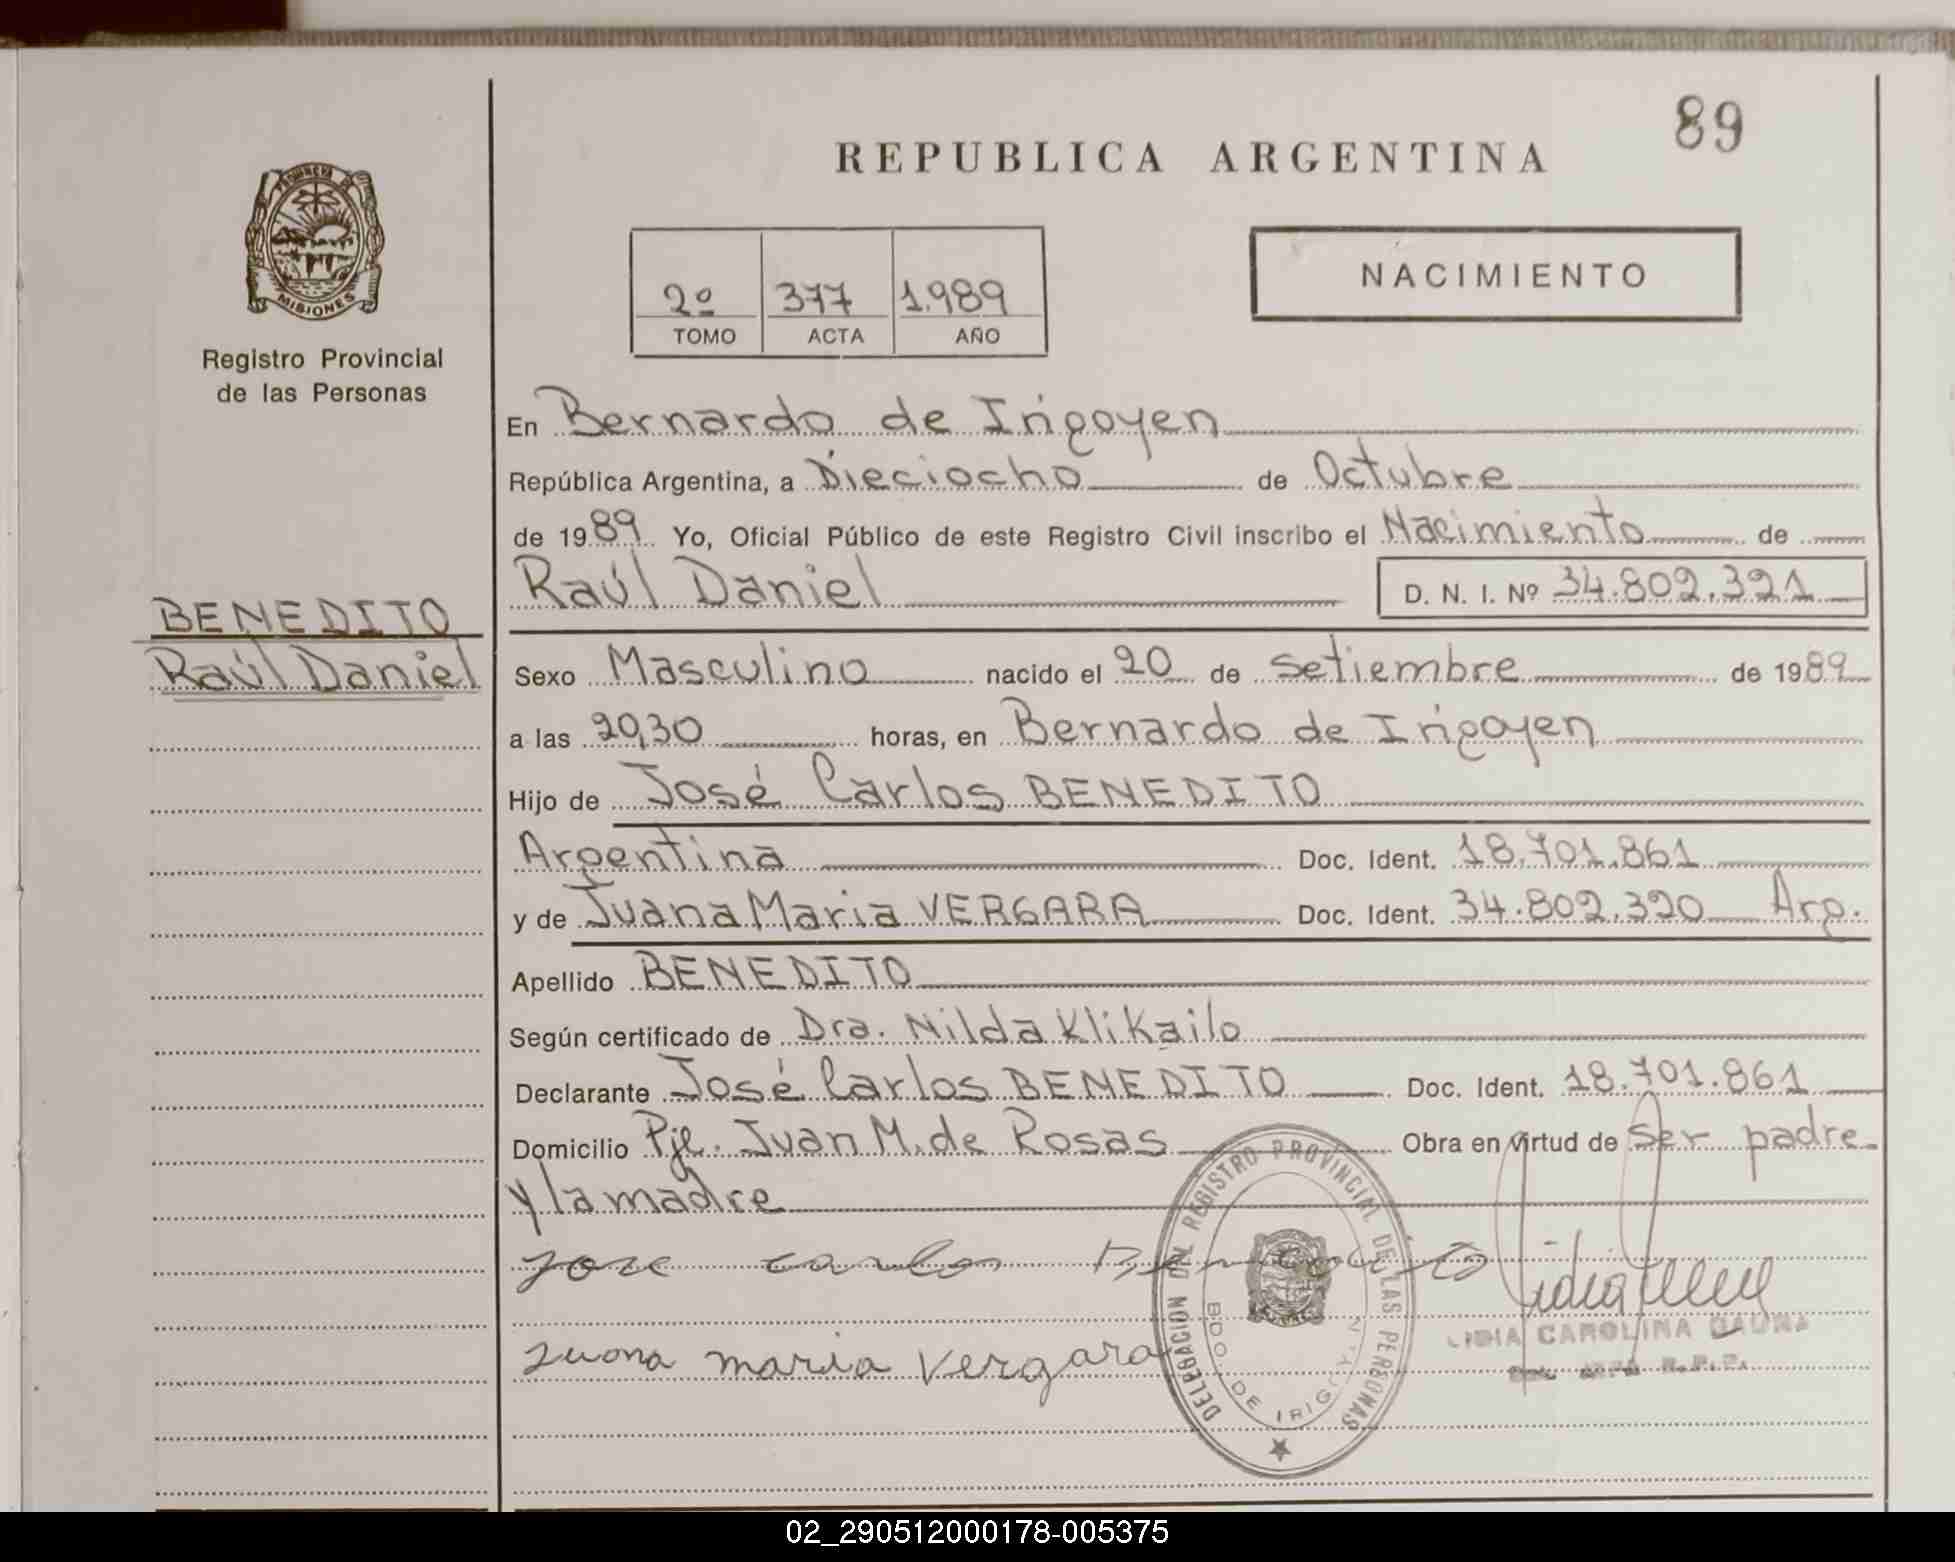 89
REPUBLICA ARGENTINA
PROVINCIA DE
MISIONES
Registro Provincial
de las Personas
2º 377 1.989
TOMO ACTA AÑO
NACIMIENTO
En Bernardo de Irigoyen
República Argentina, a Dieciocho de Octubre
de 1989 Yo, Oficial Público de este Registro Civil inscribo el Nacimiento de
Raúl Daniel D. N. I. Nº 34.802.321
BENEDITO
Raúl Daniel
Sexo Masculino nacido el 20 de Setiembre de 1989
a las 20,30 horas, en Bernardo de Irigoyen
Hijo de José Carlos BENEDITO
Argentina Doc. Ident. 18.701.861
y de Juana Maria VERGARA Doc. Ident. 34.802.320 Arg.
Apellido BENEDITO
Según certificado de Dra. Nilda Klikailo
Declarante José Carlos BENEDITO Doc. Ident. 18.701.861
Domicilio Pje. Juan M. de Rosas Obra en virtud de Ser padre
y la madre
Jose Carlos Benedito
Juana maria Vergara
DELEGACION DEL REGISTRO PROVINCIAL DE LAS PERSONAS
BDO. DE IRIGOYEN
LIDIA CAROLINA
R.P.P.
02_290512000178-005375